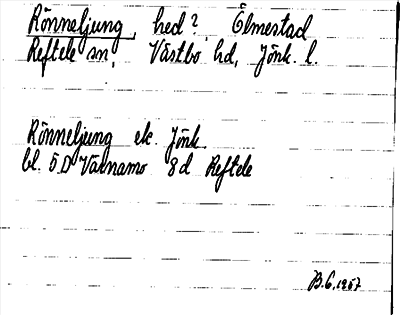 Rönneljung, hed? Ölmestad
Reftele sn, Västbo hd, Jönk. l.
Rönneljung ek. Jönk.
bl. 5D Värnamo 8d Reftele
B.G. 1967